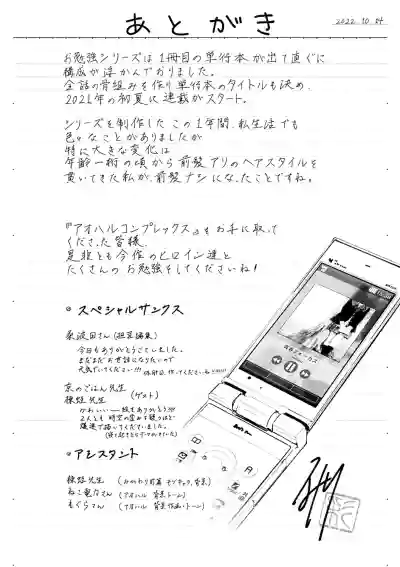 あとがき
2022.10.04
お勉強シリーズは1冊目の単行本が出て直ぐに
構成が浮かんでおりました。
全話の骨組みを作り単行本のタイトルも決め、
2021年の初夏に連載がスタート。
シリーズを制作したこの1年間、私生活でも
色々なことがありましたが
特に大きな変化は
年齢一桁の頃から前髪アリのヘアスタイルを
貫いてきた私が、前髪ナシになったことですね。
『アオハルコンプレックス』をお手に取って
くださった皆様、
是非とも今作のヒロイン達と
たくさんのお勉強をしてくださいね!
スペシャルサンクス
さん(担当編集)
今日もありがとうございました。
まだまだお世話になりたいので
元気でいてください!!!
京のごはん先生
先生
(ゲスト)
かわいい
アシスタント
先生
さん(アオハル 背景・トーン)
もぐらさん(アオハル 背景作画・トーン)